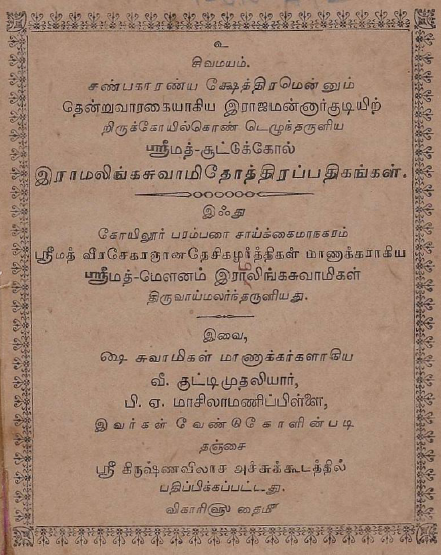 உ
சிவமயம்.
சண்பகாரண்ய க்ஷேத்திரமென்னும்
தென்றுவாரகையாகிய இராஜமன்னார்குடியிற்
றிருக்கோயில்கொண் டெழுந்தருளிய
ஸ்ரீமத்-சூட்டுக்கோல்
இராமலிங்கசுவாமிதோத்திரப்பதிகங்கள்.
இஃது
கோயிலூர் பரம்பரை சாய்க்கைமாநகரம்
ஸ்ரீமத் வீரசேகரஞானதேசிகமூர்த்திகள் மாணாக்கராகிய
ஸ்ரீமத்-மௌனம் இராலிங்கசுவாமிகள்
திருவாய்மலர்ந்தருளியது.
இவை,
ஷை சுவாமிகள் மாணாக்கர்களாகிய
வீ. குட்டிமுதலியார்,
பி. ஏ. மாசிலாமணிப்பிள்ளை,
இவர்கள் வேண்டுகோளின்படி
தஞ்சை
ஸ்ரீ கிருஷ்ணவிலாச அச்சுக்கூடத்தில்
பதிப்பிக்கப்பட்டது.
விகாரி௵ தைமீ